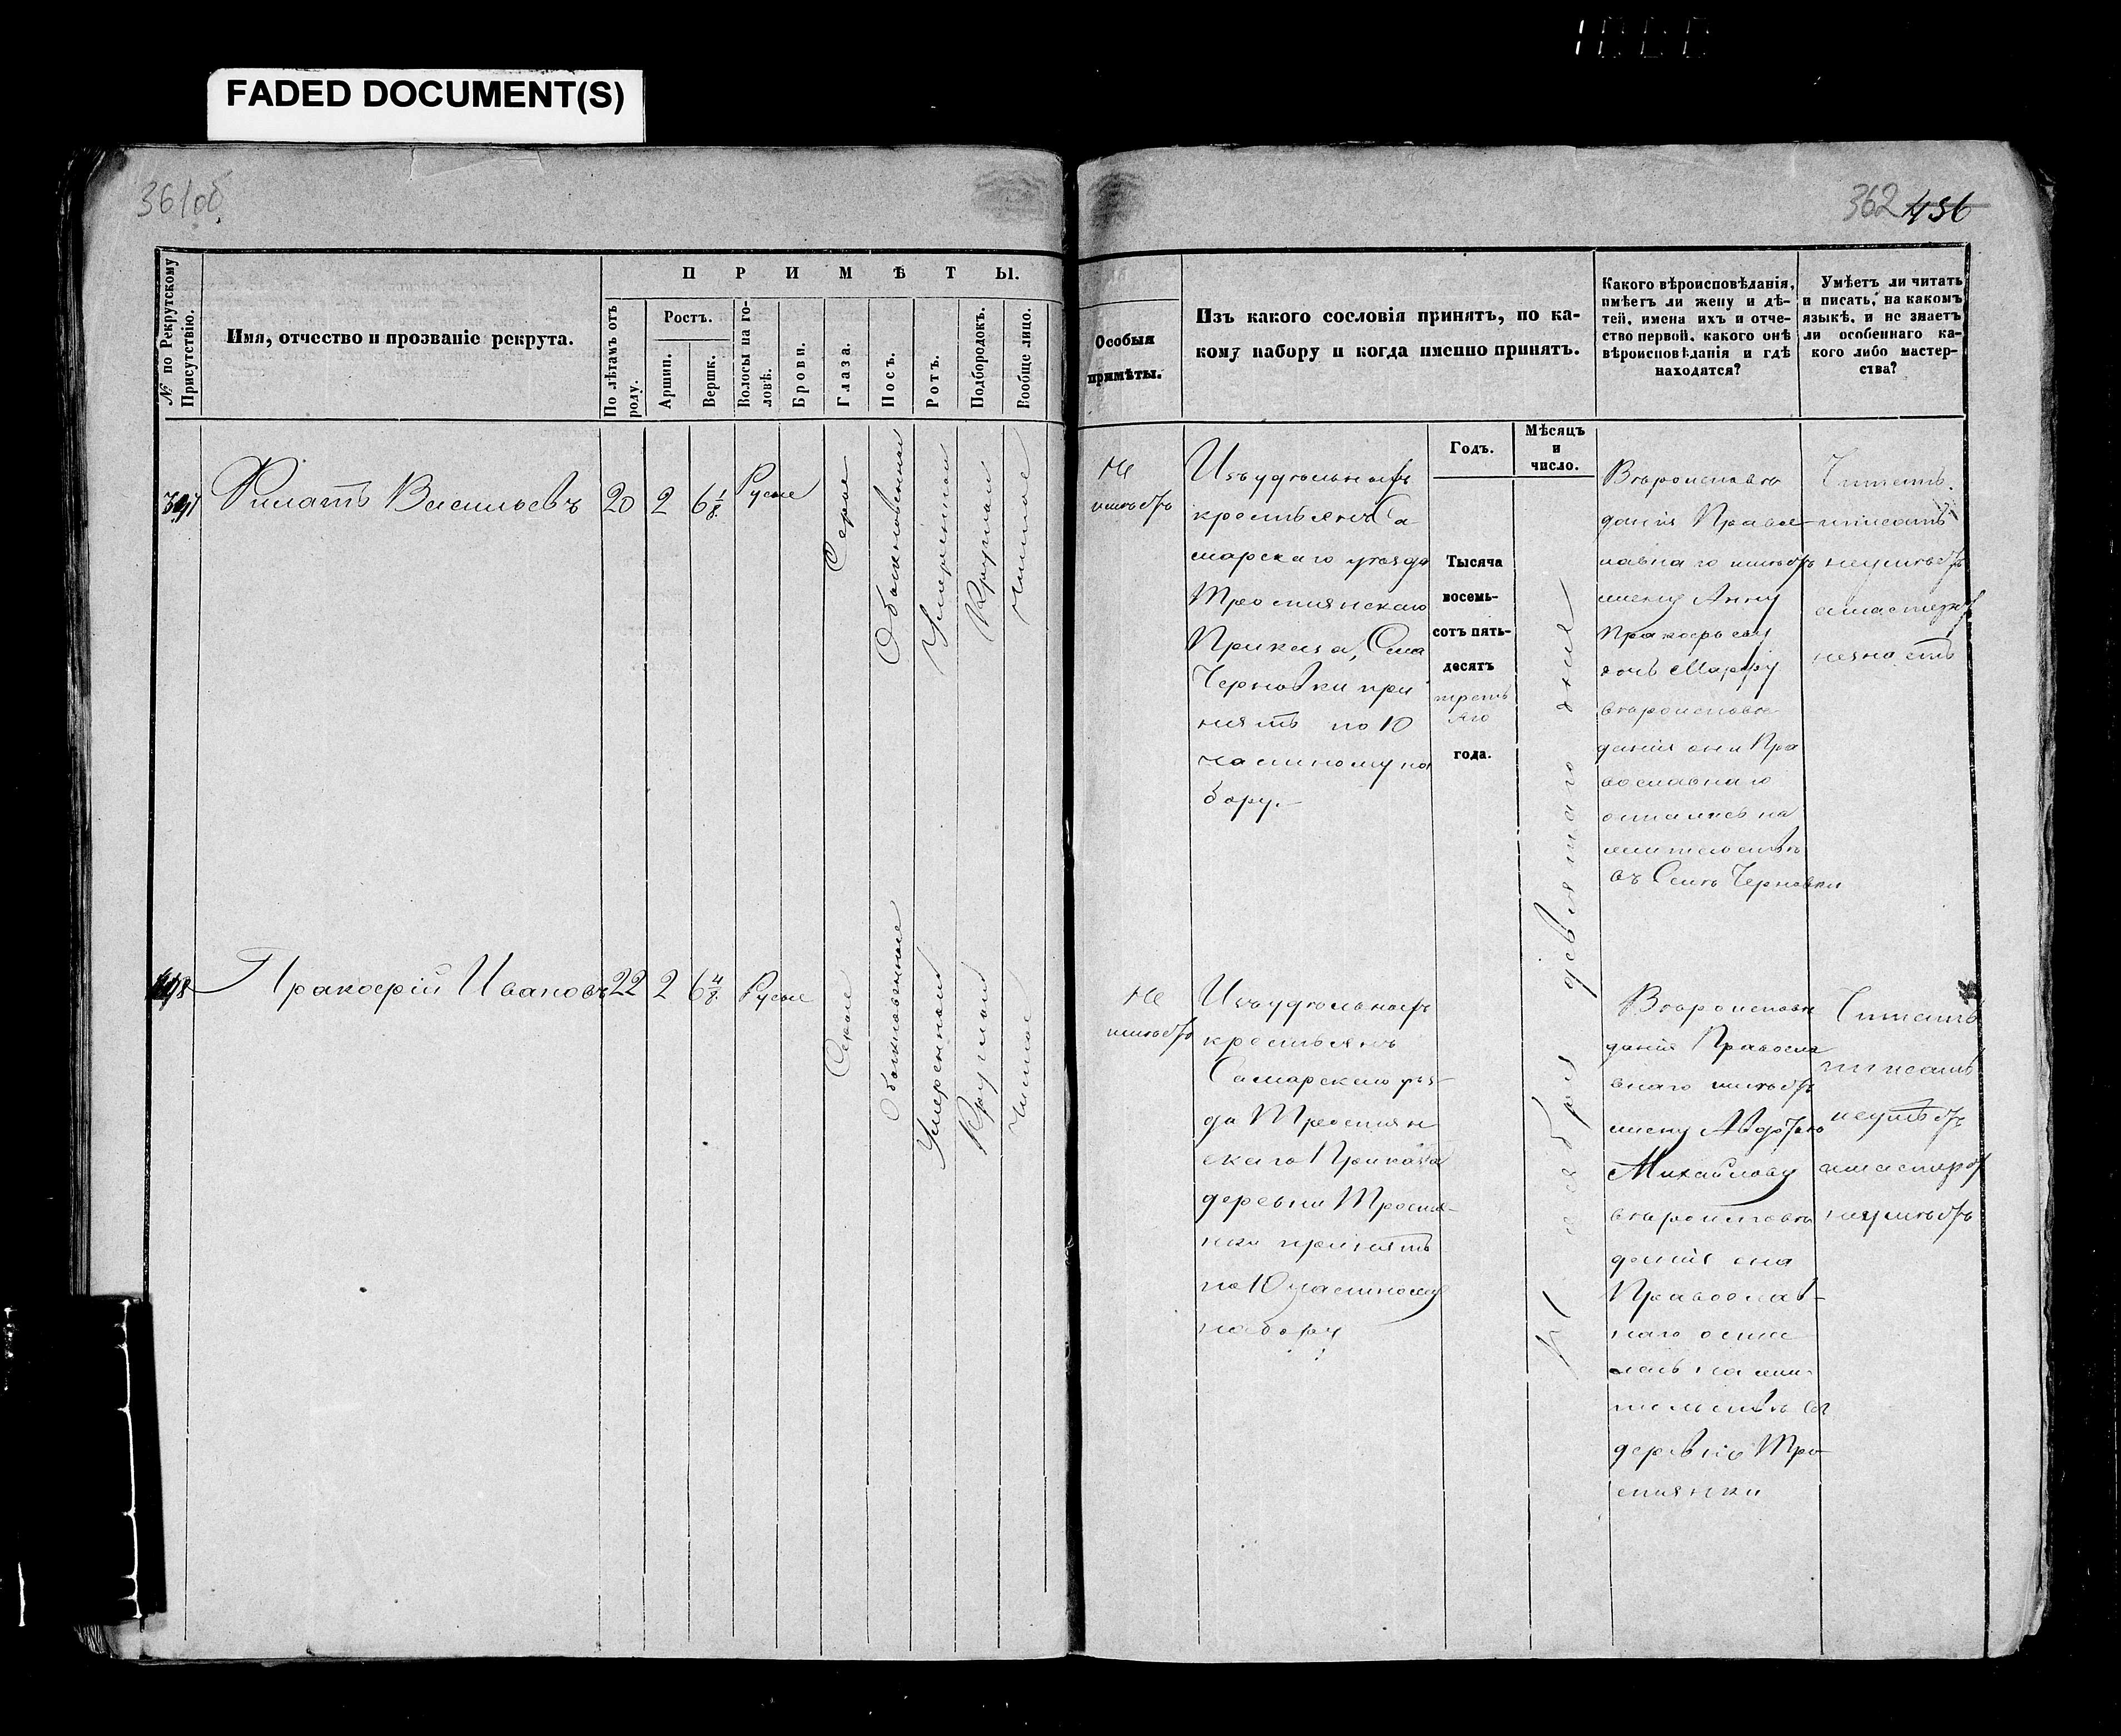 1000
FADED DOCUMENT(S)
361об.
362 436
№ по Рекрутскому Присутствію.
Имя, отчество и прозваніе рекрута.
П Р И М Ѣ Т Ы.
По лѣтамъ отъ роду.
Ростъ.
Аршин.
Вершк.
Волосы на головѣ.
Брови.
Глаза.
Носъ.
Ротъ.
Подбородокъ.
Вообще лицо.
Особыя
примѣты.
Изъ какого сословія принятъ, по ка-
кому набору и когда именно принятъ.
Какого вѣроисповѣданія,
имѣетъ ли жену и дѣ-
тей, имена ихъ и отче-
ство первой, какого онѣ
вѣроисповѣданія и гдѣ
находятся?
Умѣетъ ли читать
и писать, на какомъ
языкѣ, и не знаетъ
ли особеннаго ка-
кого либо мастер-
ства?
Годъ.
Мѣсяцъ
и
число.
Филатъ Васильевъ
20
2
6 1/8
Русые
Серые
Обыкновенный
Умеренный
Круглый
Чистое
Не
имѣетъ
Изъ удѣльныхъ
крестьянъ Са-
марскаго уезда
Тростянскаго
Приказа, Села
Черновки при
нятъ по 10
частному на
бору.
Тысяча
восемь-
сотъ пять-
десятъ
третьяго
года.
Ноября девятаго дня
Вѣроисповѣ
данія Правос-
лавнаго имѣетъ
жену Анну
Пракофьеву
дочь Марфу
вѣроисповѣ-
данія они Пра
вославнаго
остались на
жительствѣ
въ Селѣ Черновки
Читать
писать
неумѣетъ
а мастерст
незнаетъ
498
Пракофій Ивановъ
22
2
6 4/8
Русые
Серые
Обыкновенные
Умеренный
Круглый
Чистое
Не
имѣетъ
Изъ удѣльныхъ
крестьянъ
Самарскаго уез-
да Тростян
скаго Приказа
деревни Тростя-
нки принятъ
по 10 частному
набору
Вѣроисповѣ
данія Правосла
внаго имѣетъ
жену Авдотью
Михайлову
вѣроисповѣ
данія она
Православ-
наго оста
лась на жи-
тельствѣ въ
деревнѣ Тро-
стянки
Читать
писать
неумѣетъ
а мастерст
неумѣетъ